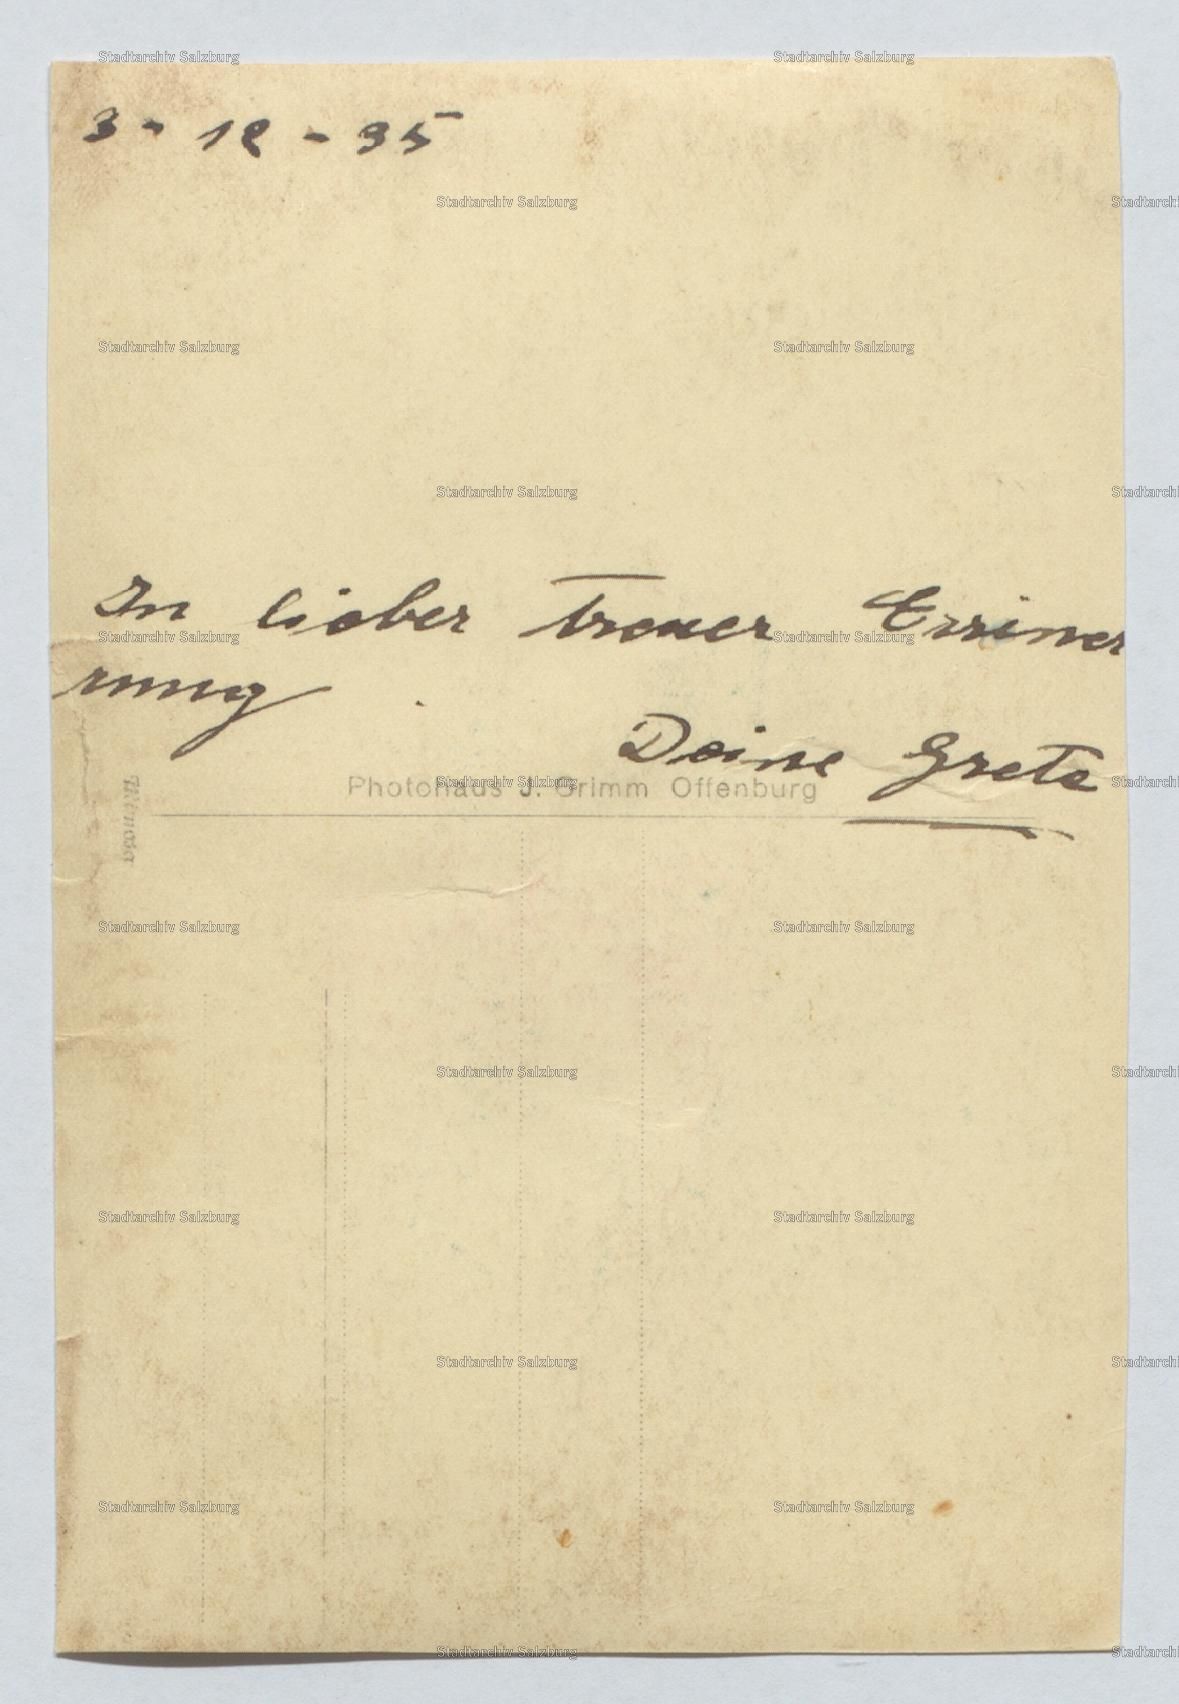 3 - 12 - 35
In lieber treuer Erriner
rung.
Deine Grete
Photohaus J. Grimm Offenburg
Mimosa
Stadtarchiv Salzburg